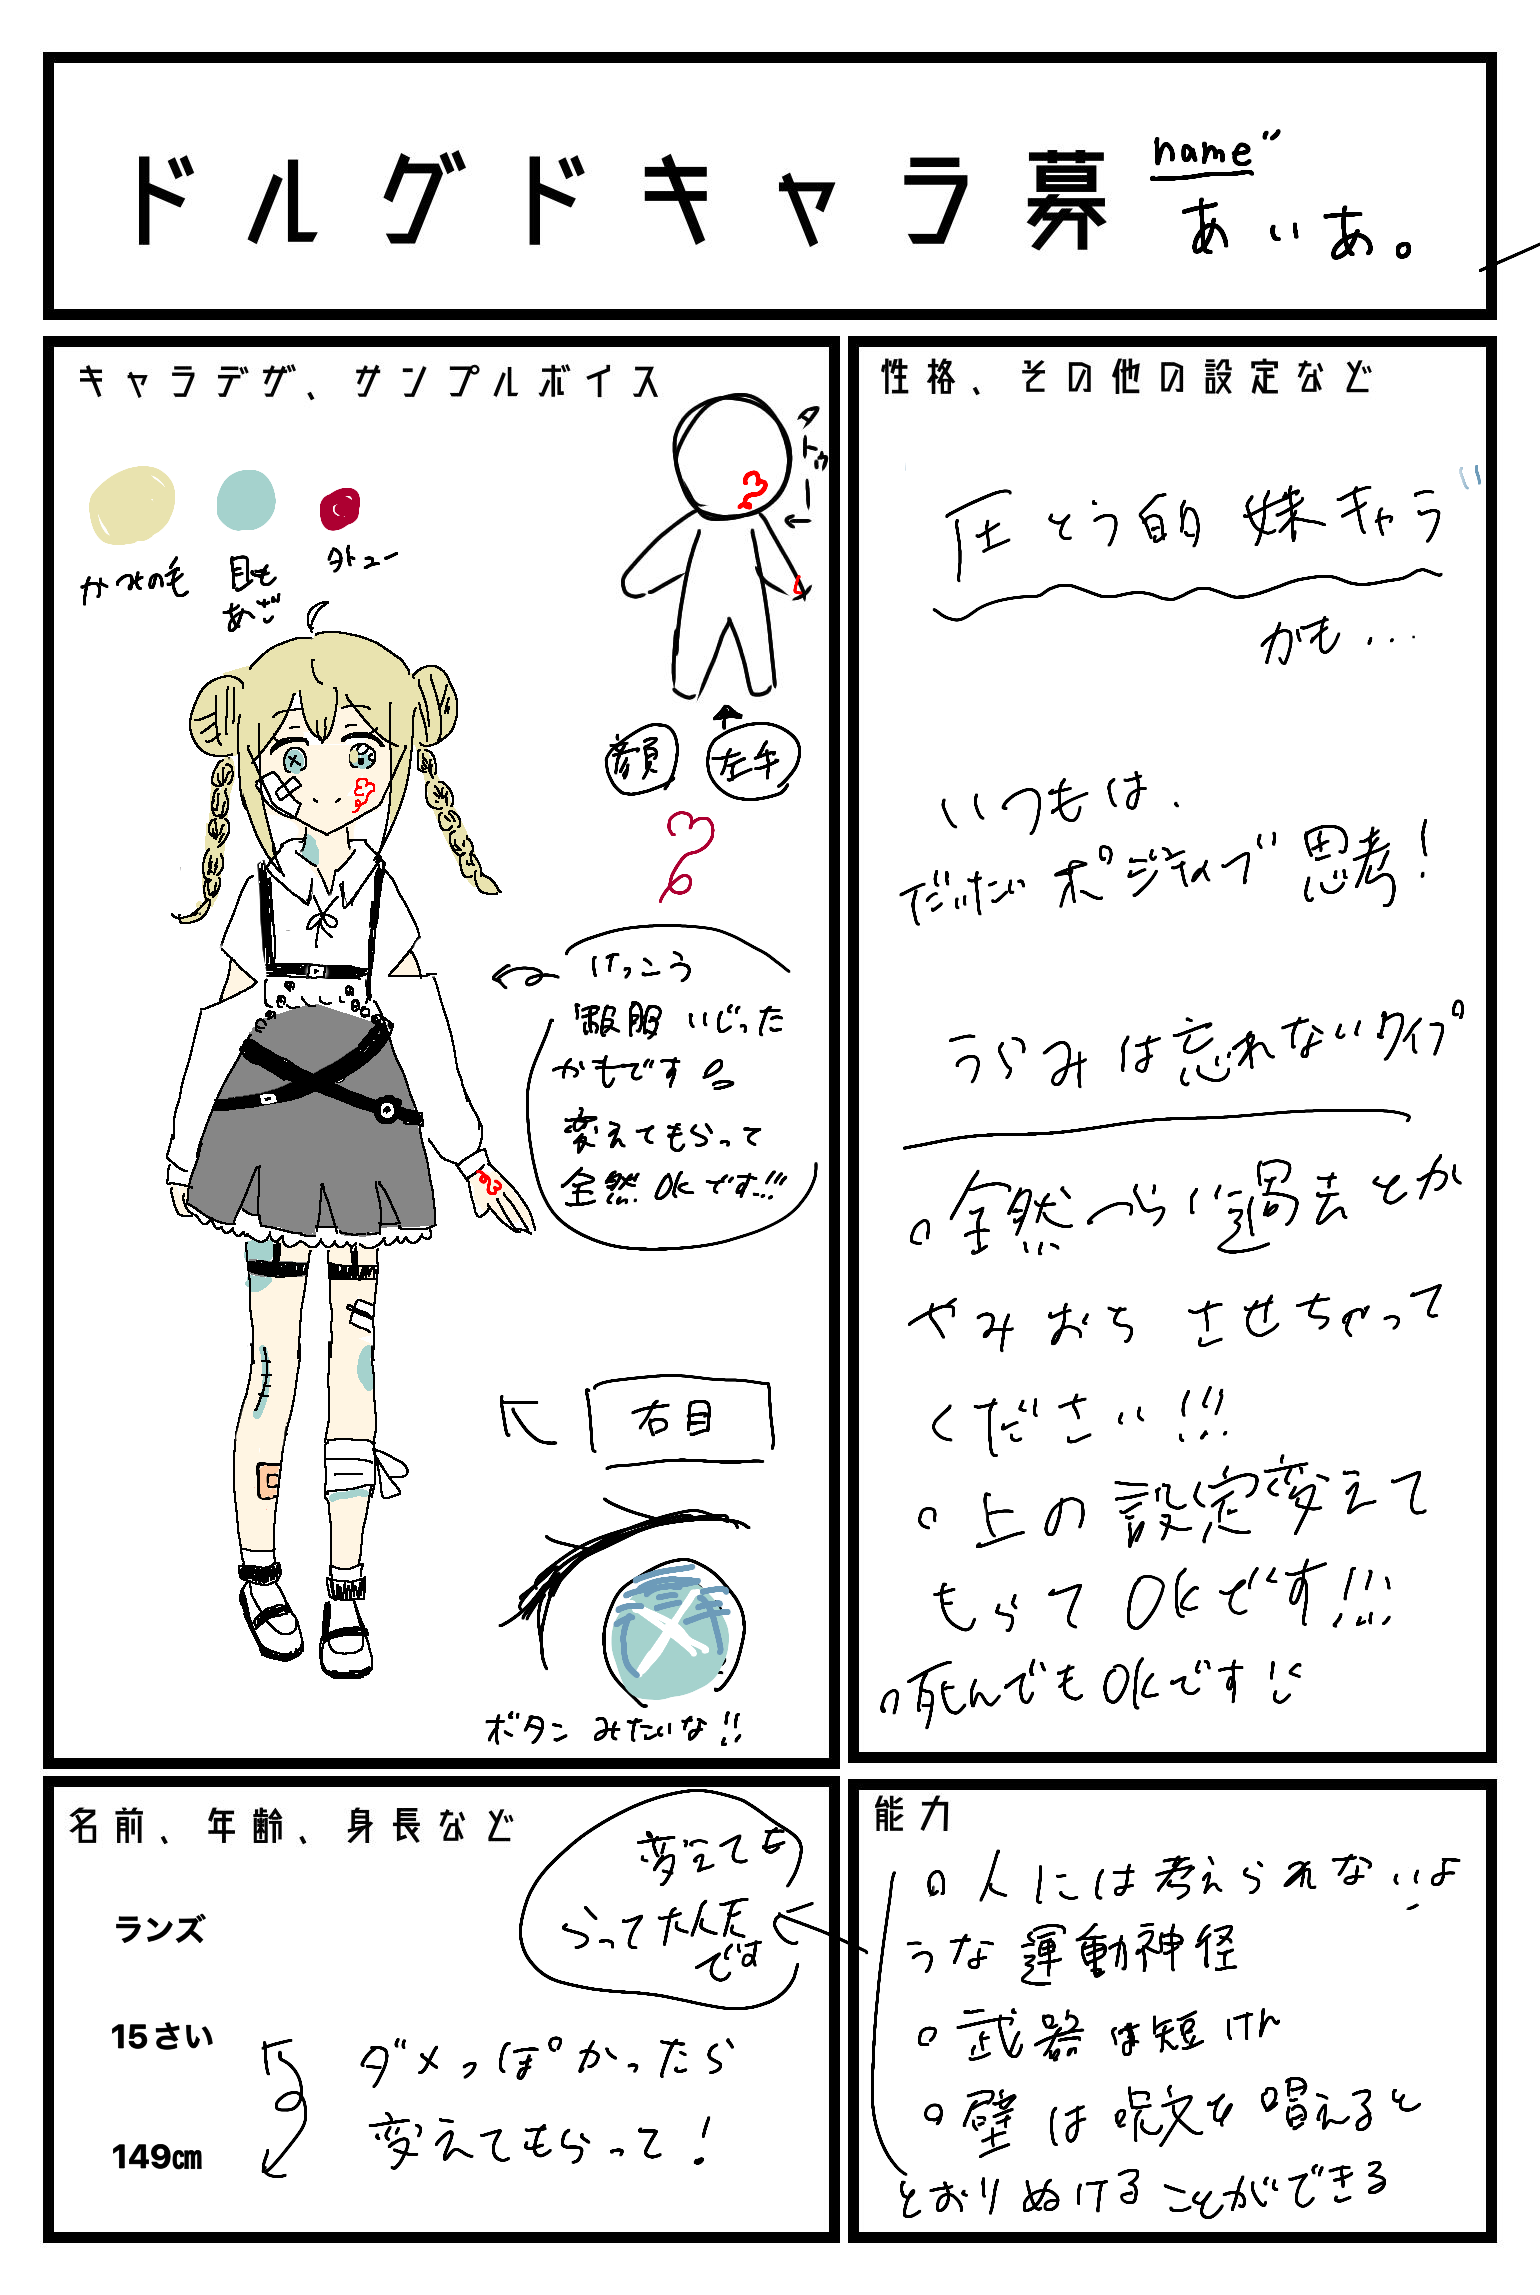 ドルグドキャラ募
name
あいあ。
キャラデザ、サンプルボイス
かみの毛
目も
あご
タトゥー
タトゥー
顔
左手
けっこう
制服 いじった
かもです
変えてもらって
全然 OKです!!!
右目
ボタン みたいな!!
性格、その他の設定など
圧とう的 妹キャラ
かも...
いつもは、
だいたい ポジティブ 思考!
うらみは忘れないタイプ
全然 つらい過去とか
やみおち させちゃって
ください!!!
上の設定変えて
もらて OKです!!!
死んでも OKです!!
名前、年齢、身長など
変えても
らってたんた
です
ランズ
15さい
149㎝
ダメっぽかったら
変えてもらって!
能力
人には考えられないよ
うな運動神径
武器は短けん
壁は呪文を唱えると
とおりぬけることができる